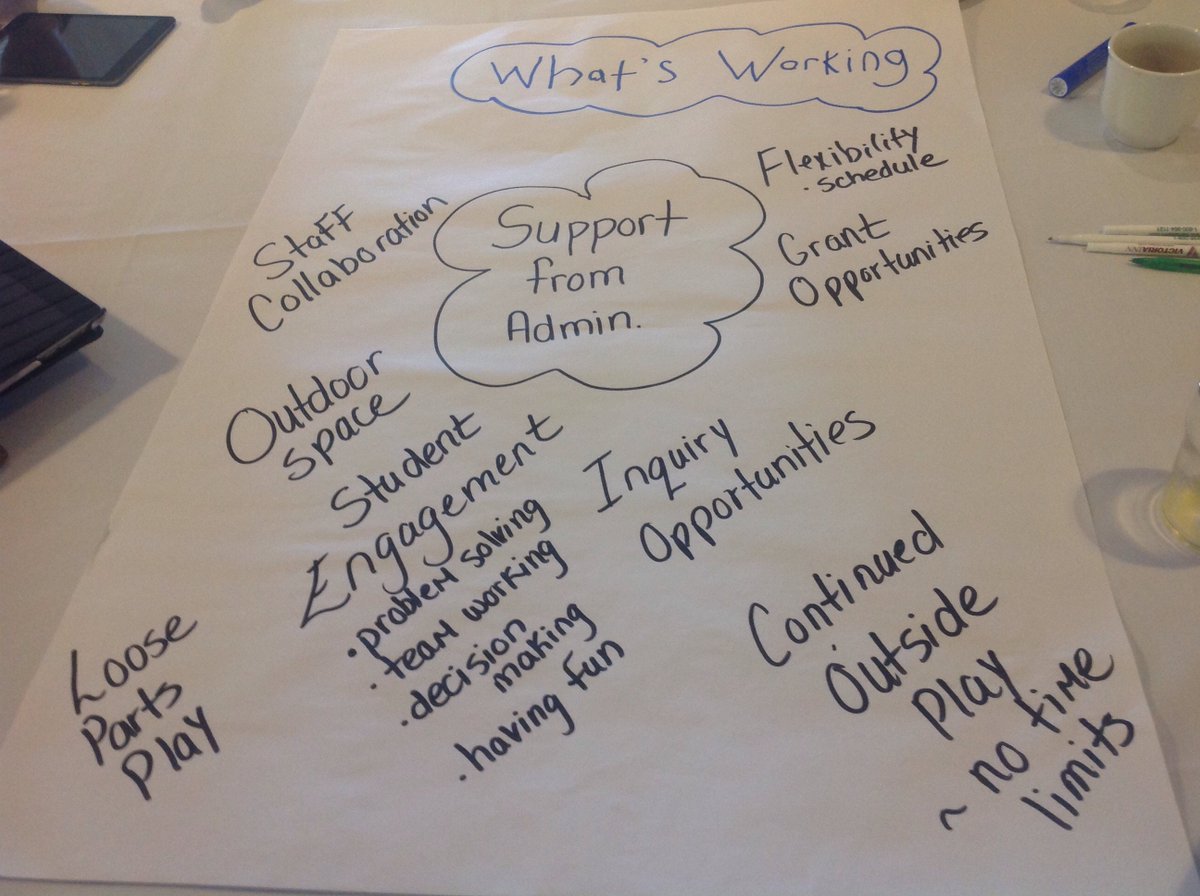 What's Working
Support
from
Admin.
Flexibility
. schedule
Grant
Opportunities
Staff
Collaboration
Outdoor
space
Student
Engagement
. problem solving
. team working
. decision
making
. having fun
Inquiry
Opportunities
Continued
Outside
play
~ no time
limits
Loose
Parts
Play
VICTORIA INN